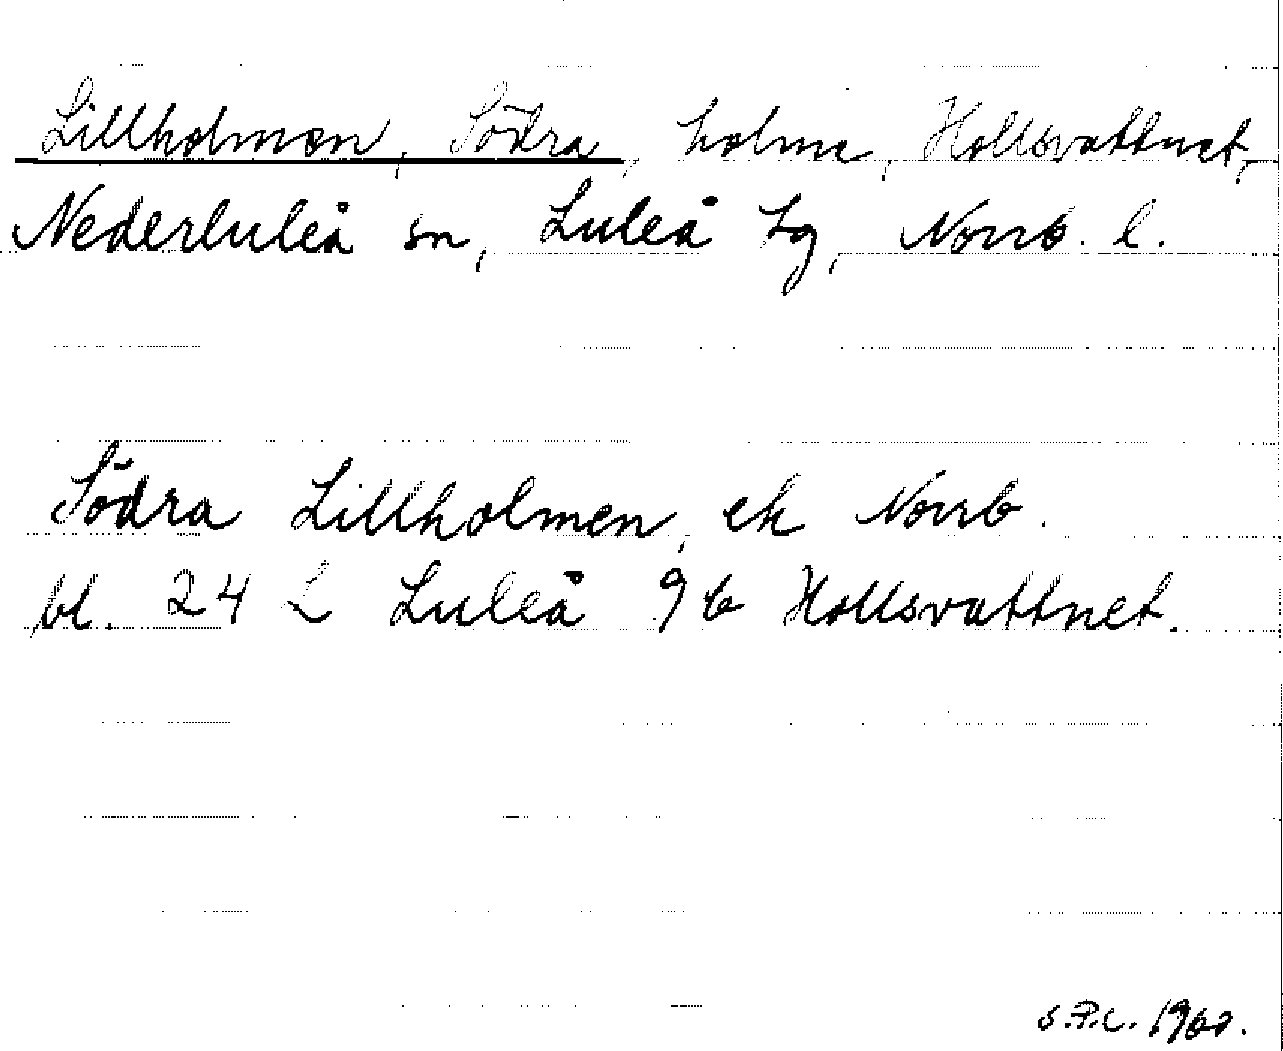 Lillholmen, Södra, holme, Hollsvattnet,
Nederluleå sn, Luleå tg, Norrb. l.
Södra Lillholmen, ek Norrb.
bl. 24 L Luleå 9 b Hollsvattnet.
1960.